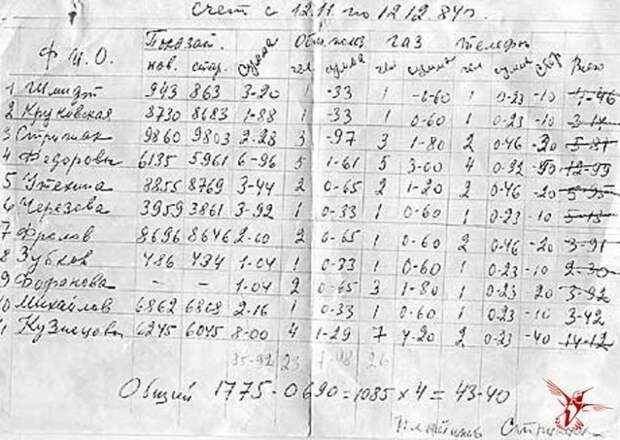 Счет с 12.11 по 12 12.84г.
Ф. И. О. Показат. нов. стар. сумма Общ. польз чел сумма газ чел сумма телефон чел сумма сбор Всего
1 Шмидт 943 863 3-20 1 -33 1 -0-60 1 0-23 -10
2 Круковская 8730 8683 1-88 1 -33 1 0-60 1 0-23 -10
3 Стрипак 9860 9803 2-28 3 -97 3 1-80 2 0-46 -20 5-81
4 Федоровы 6135 5961 6-96 5 1-61 5 3-00 4 0-92 12-99
5 Утехина 8855 8769 3-44 2 0-65 2 1-20 2 0-46 -20
6 Черезова 3959 3861 3-92 1 0-33 1 0-60 1 0-23 -10
7 Фролов 8696 8646 2-00 2 0-65 1 0-60 2 0-46 -20 3-91
8 Зубков 486 434 1-04 1 0-33 1 0-60 1 0-23 -10 2-30
9 - - 1-04 2 0-65 3 1-80 1 0-23 20 3-92
10 Михайлов 6862 6808 2-16 1 0-33 1 0-60 1 0-23 -10 3-42
11 Кузнецовы 6245 6045 8-00 4 1-29 7 4-20 2 0-23 -40 14-12
35-92 23 7-48 26
Общий 1775-0690=1085×4=43-40